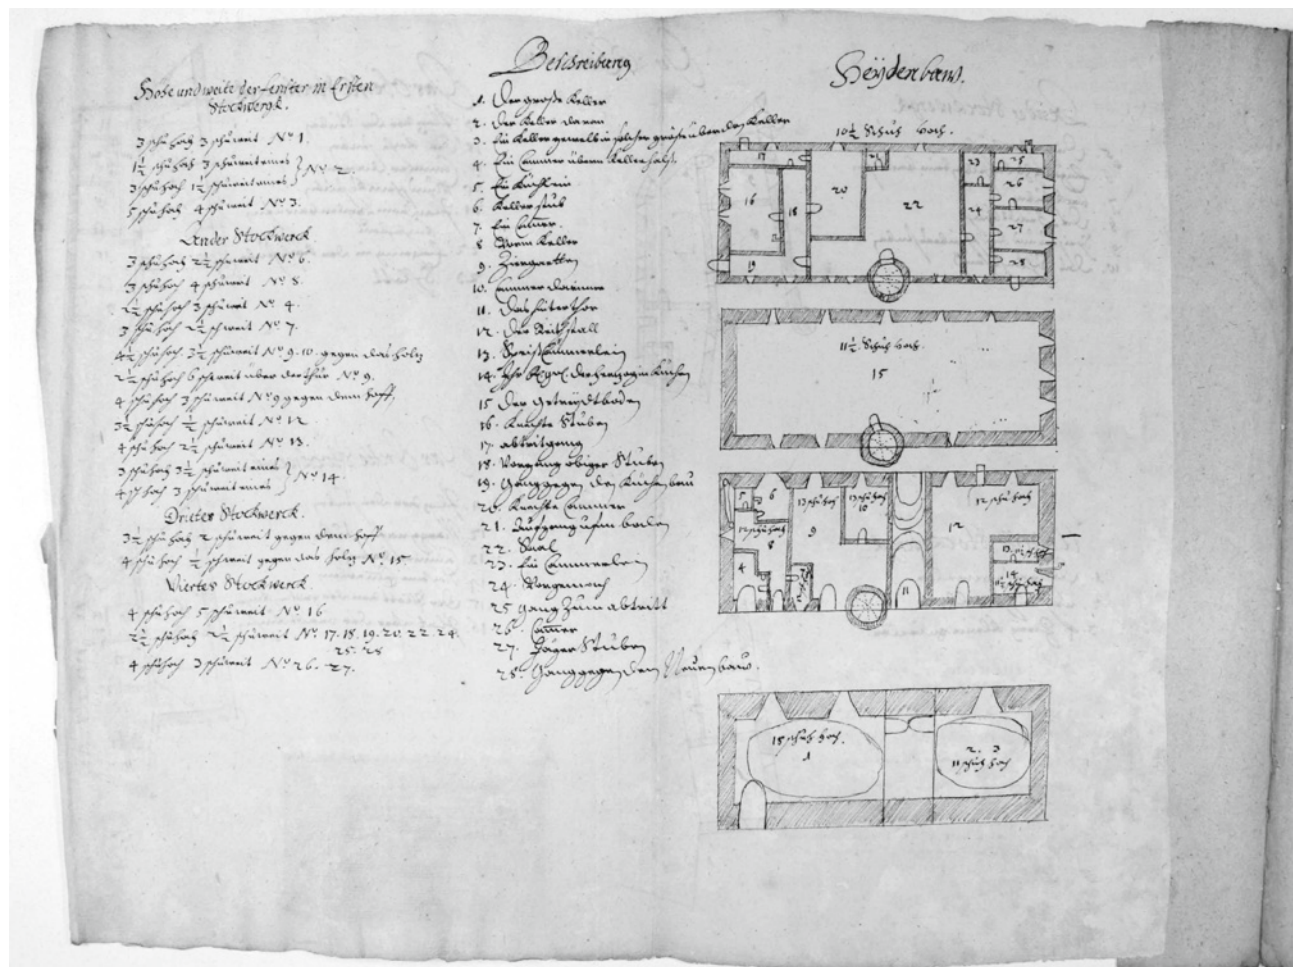 Höhe und weite der fenster in Ersten
Stockwergk.
3 schu hoch 3 schu weit No 1.
1½ schu hoch 3 schu weit eines } No 2.
3 schu hoch 1½ schu weit eines
5 schu hoch 4 schu weit No 3.
Ander Stockwerck
3 schu hoch 2½ schu weit No 6.
3 schu hoch 4 schu weit No 8.
2½ schu hoch 3 schu weit No 4.
3 schu hoch 2½ schu weit No 7.
4½ schu hoch 3½ schu weit No 9. 10. gegen das holtz
2½ schu hoch 6 schu weit über der thür No 9.
4 schu hoch 3 schu weit No 9 gegen dem hoff.
3½ schu hoch ½ schu weit No 12
4 schu hoch 2½ schu weit No 13.
3 schu hoch 3½ schu weit eines } No 14.
4 schu hoch 3 schu weit eines
Dritter Stockwerck.
3½ schu hoch 2 schu weit gegen dem hoff
4 schu hoch ½ schu weit gegen das holtz No 15.
Viertes Stockwerck
4 schu hoch 5 schu weit No 16
2½ schu hoch 2½ schu weit No 17. 18. 19. 20. 22. 24.
25. 28
4 schu hoch 3 schu weit No 26. 27.
Beschreibung
1. Der große Keller
2. Der Keller daran
3. Ein Keller gewelb in solcher größe über den Keller
4. Ein Cammer überm Kellerhalß.
5. Ein Küchlein
6. Keller stub
7. Ein Cammer.
8. Vorm Keller
9. Ziergartten
10. Cammer darinne
11. Das hinterthor
12. Der Reitstall
13. Speiß Cammerlein
14. der Herzogin Kuchen
15. Der Getreydtboden
16. Knechte Stuben
17. abtritgang
18. Vorgang obiger Stuben
19. Gang gegen den Kuchenbau
20. Knechte Cammer
21. Aufgang ufm boden
22. Saal
23. Ein Cammerlein
24. Vorgemach
25. Gang zum abtritt
26. Cammer
27. Jäger Stuben
28. Gang gegen dem Neuen bawe.
Heÿdenbaw.
10½ Schuh hoch.
17
21
23
25
16
20
26
18
22
24
27
19
28
11½ Schuh hoch.
15
5
6
13 schu hoch
13 schu hoch
10
12 schu hoch
12 schu hoch
8
9
12
4
7
11
13
14
18 schuh hoch.
1
2. 3
11 schuh hoch